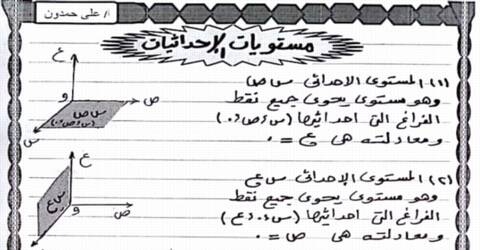 أ/ على حمدون
مستويات الإحداثيات
(١) المستوى الاحداثى س ص
وهو مستوى يحوى جميع نقط
الفراغ التى احداثيها (س، ص، ٠)
ومعادلته هى ع = ٠
ع
ص
و
س
س ص
(س، ص، ٠)
(٢) المستوى الاحداثى س ع
وهو مستوى يحوى جميع نقط
الفراغ التى احداثيها (س، ٠، ع)
ومعادلته هى ص = ٠
ع
ص
و
س ع